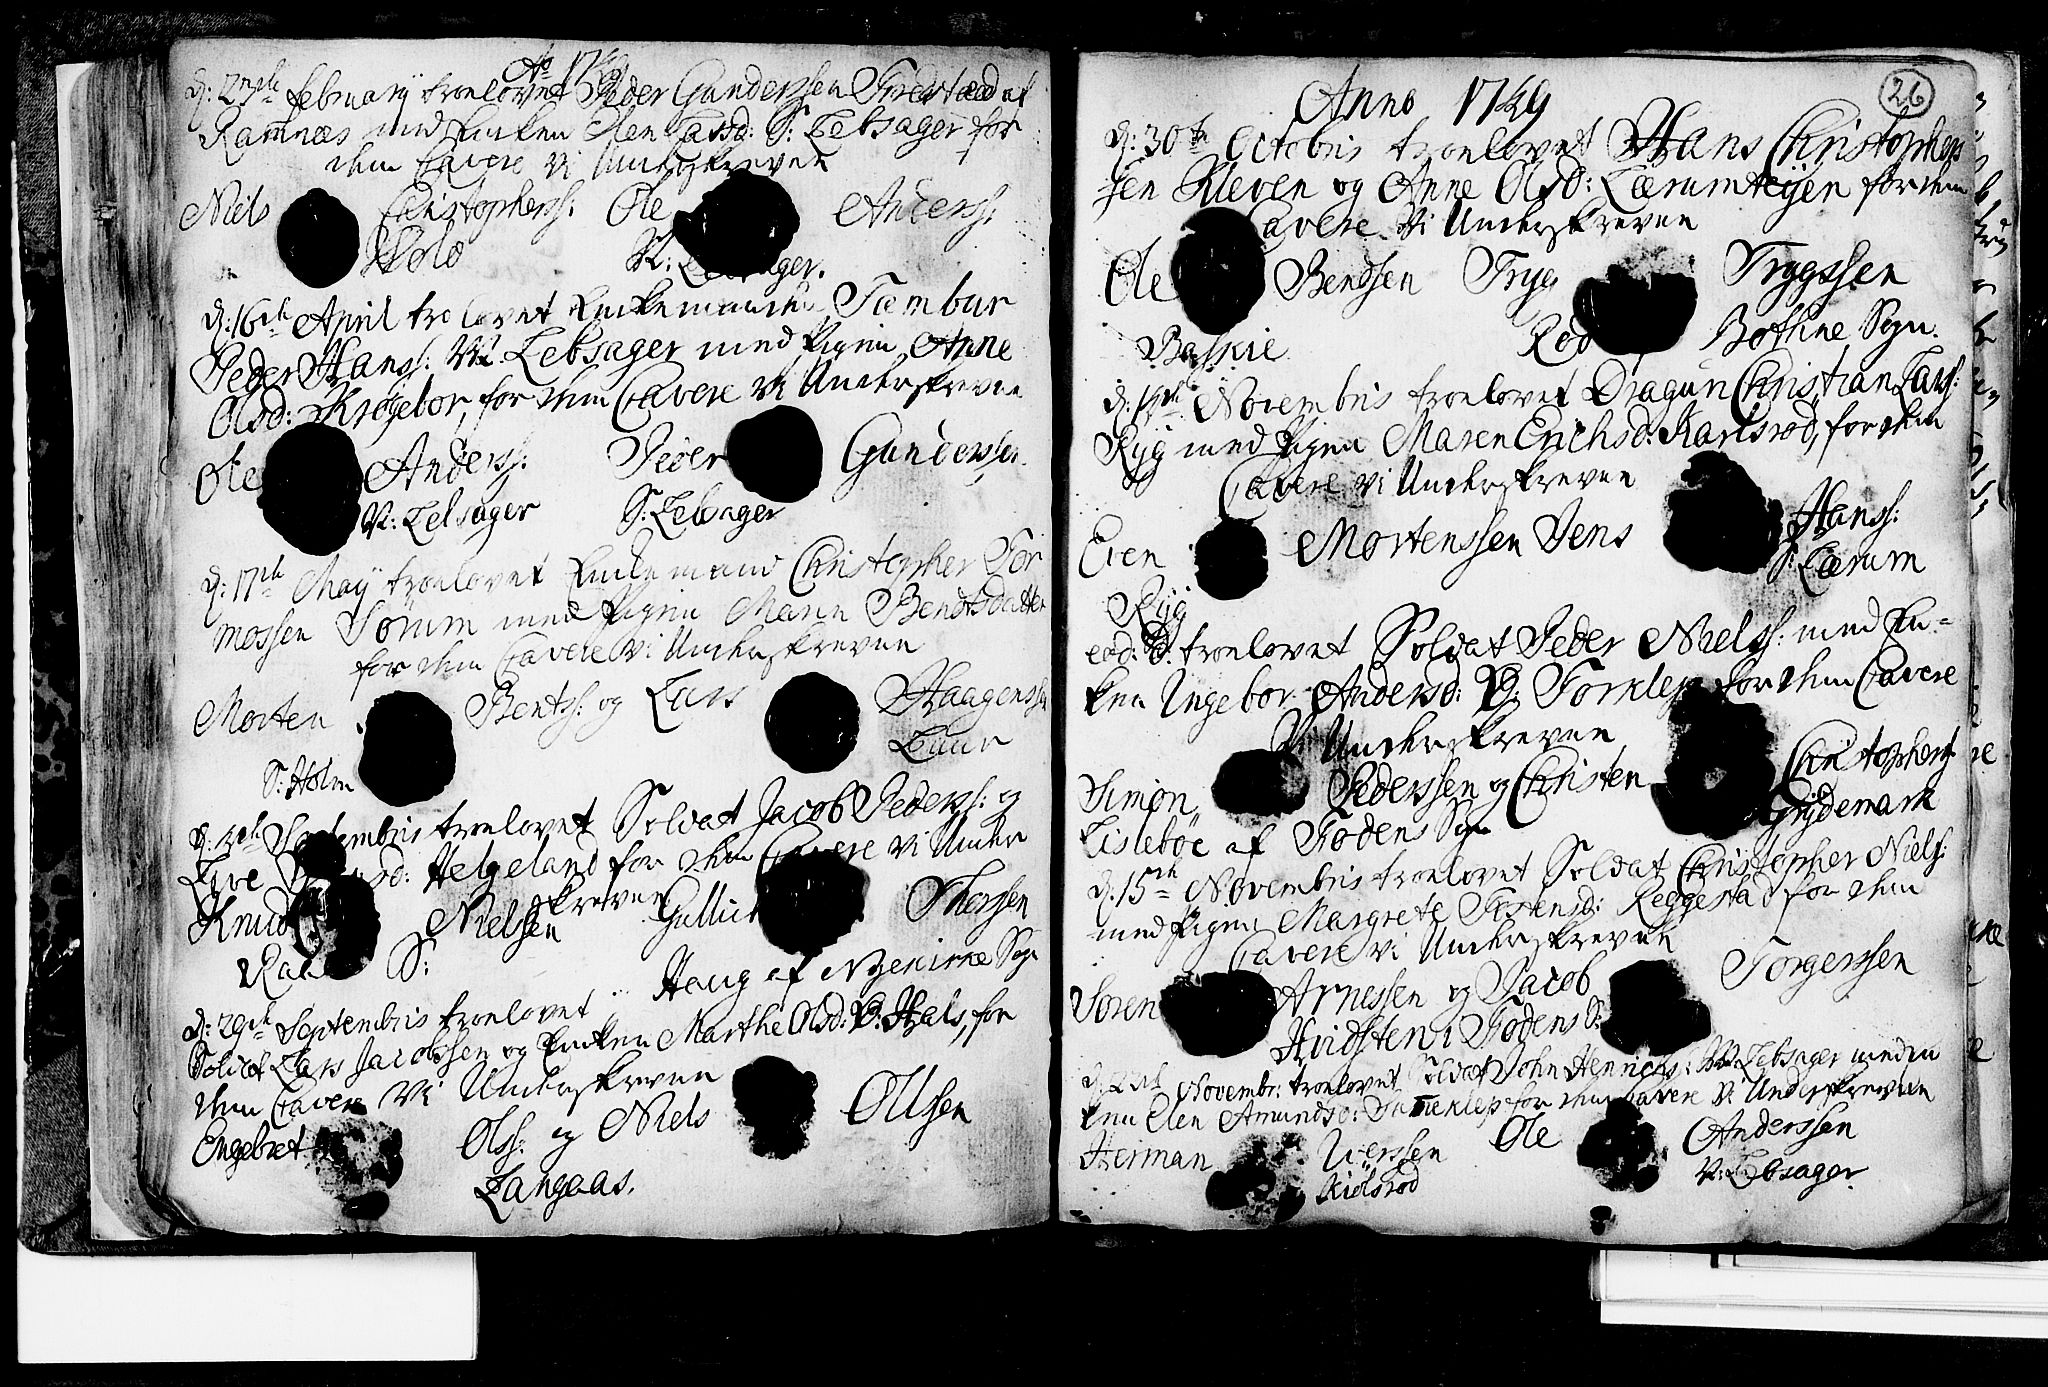 Ao 1749
d: 2den february troelovet Peder Gunderssen Firestad af
Ramnæs med Enken Elen Larsd: S: Lebsager for
dem Cavere Vi Underskreven
Niels Christophers: Ole Anderss:
Holo N: Lebsager.
d: 16de April trolovet Enkemanden Tambur
Peder Hanss: N: Lebsager med Pigen Anne
Olsd: Krogebor, for dem Cavere Vi Underskreven
Ole Anderss: Peder Gunderssen
N: Lebsager S: Lebsager
d: 17de May troelovet Enkemand Christopher Tor
mossen Sørum med Pigen Maren Bendtsdatter
for dem Cavere Vi Underskreven
Morten Bentss: og Lars Haagenssen
S: Holm Luur
d: Septembris troelovet Soldat Jacob Pederss: og
Live Helgeland for dem Cavere Vi Under
skreven
Knud Nielsen Gullich Thorssen
S: Haug af Nyekirke Sogn
d: 29de Septembris troelovet
Soldat Lars Jacobssen og Enken Marthe Olsd: V: Hals, for
dem Cavere Vi Underskreven
Engebret Olss: og Niels Ollsen
Langaas.
26
Anno 1749
d: 30te Octobris troelovet Hans Christophers
sen Kleven og Anne Olsd: Lærumteyen for dem
Cavere Vi Underskreven
Ole Bendsen Tryg Trygssen
Baskie Rød Bothne Sogn.
d: Novembris troelovet Dragun Christian Larss:
Ryg med Pigen Maren Erichsd: Karlsrod, for dem
Cavere Vi Underskreven
Even Mortenssen Jens Hanss:
Ryg S: Lærum
eod: d: troelovet Soldat Peder Nielss: med En-
ken Ingebor Andersd: V: Torklep for dem Cavere
Vi Underskreven
Simon Pederssen og Christen Christophers:
Lisleboe af Fodens Sogn Grydemark
d: 15de Novembris troelovet Soldat Christopher Nielss:
med Pigen Margrete Tostensd: Reggestad for dem
Cavere Vi Underskreven
Søren Arnessen og Jacob Torgerssen
Hvidsten i Fodens S:
d: Novembr: troelovet Soldat John Henrichs: N: Lebsager med En
ken Elen Amundsd: for dem Cavere Vi Underskreven
Herman Iverssen Ole Anderssen
Kiølsrød N: Lebsager.